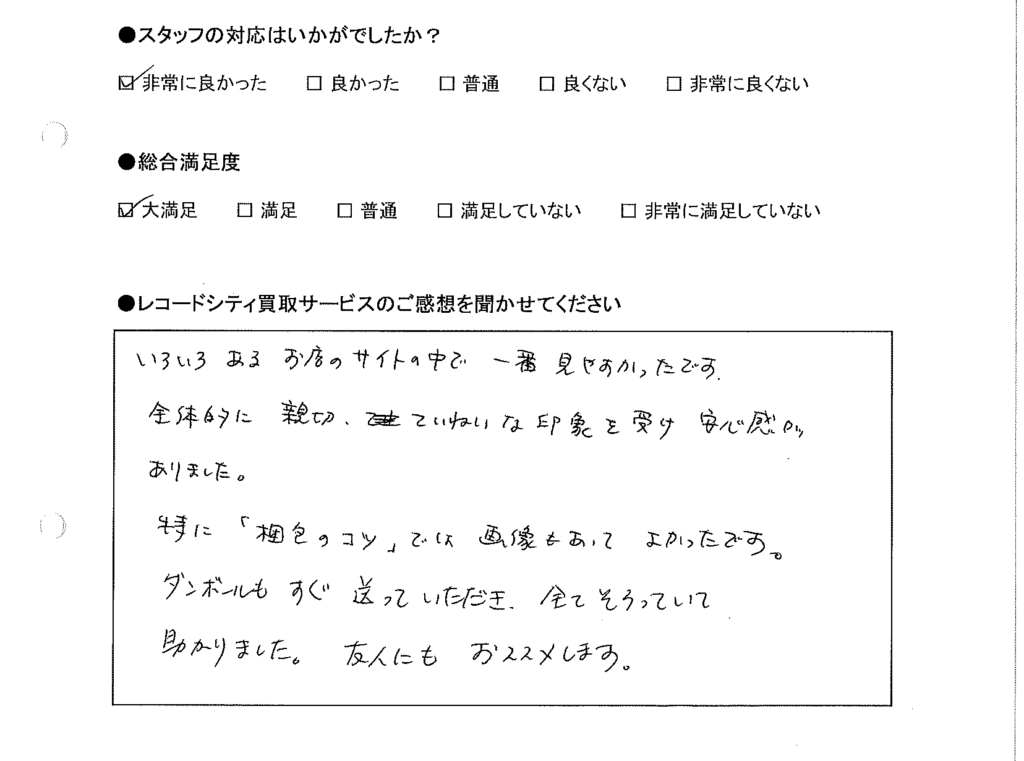 ●スタッフの対応はいかがでしたか？
☑ 非常に良かった □ 良かった □ 普通 □ 良くない □ 非常に良くない
●総合満足度
☑ 大満足 □ 満足 □ 普通 □ 満足していない □ 非常に満足していない
●レコードシティ買取サービスのご感想を聞かせてください
いろいろ ある お店の サイトの中で 一番 見やすかったです.
全体的に 親切、ていねいな 印象を 受け 安心感が
ありました。
特に 「梱包のコツ」では 画像もあって よかったです。
ダンボールも すぐ 送って いただき. 全て そろっていて
助かりました。 友人にも おススメします。